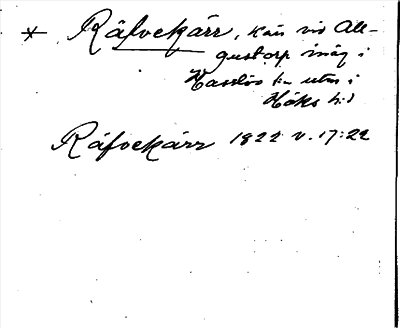 * Räfvekärr, kärr vid All-
gustorp inäg i
Hasslös sn utm i
Höks hd
Räfvekärr 1822 v. 17:22